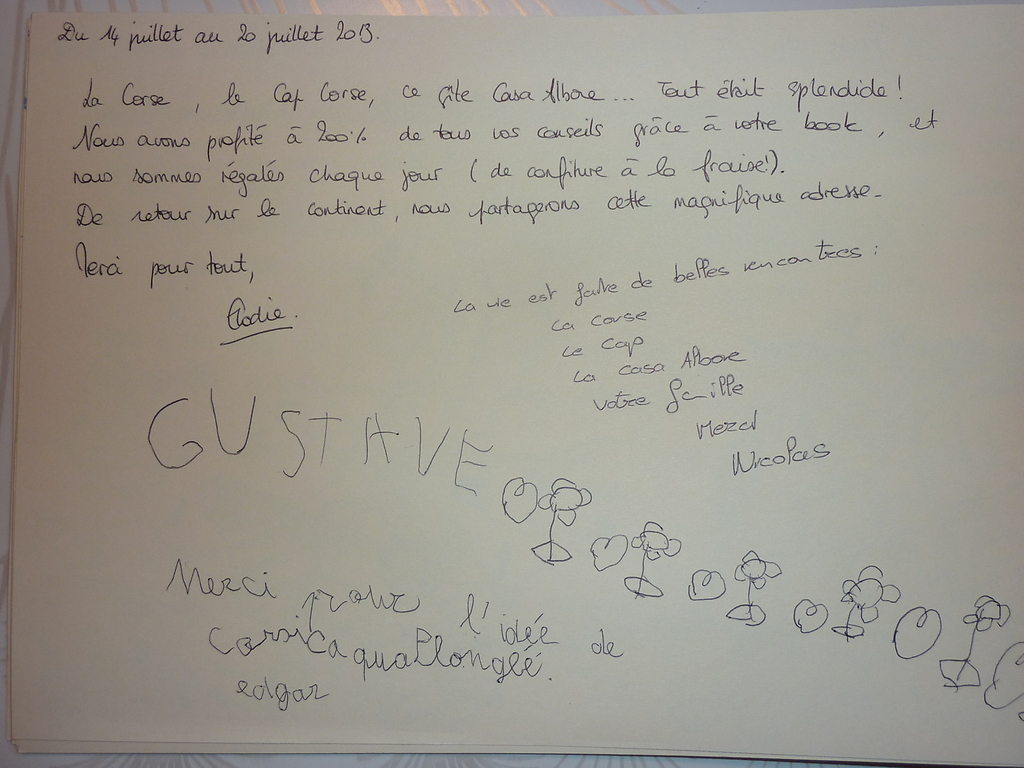 Du 14 juillet au 20 juillet 2013.
La Corse, le Cap Corse, ce gîte Casa Albore... Tout était splendide !
Nous avons profité à 200% de tous vos conseils grâce à votre book, et
nous sommes régalés chaque jour ( de confiture à la fraise!).
De retour sur le continent, nous partagerons cette magnifique adresse.
Merci pour tout,
Elodie.
La vie est faite de belles rencontres :
La Corse
Le Cap
La casa Albore
Votre famille
Merci
Nicolas
GUSTAVE
Merci pour l'idée de
corsica qua llonglé.
edgar